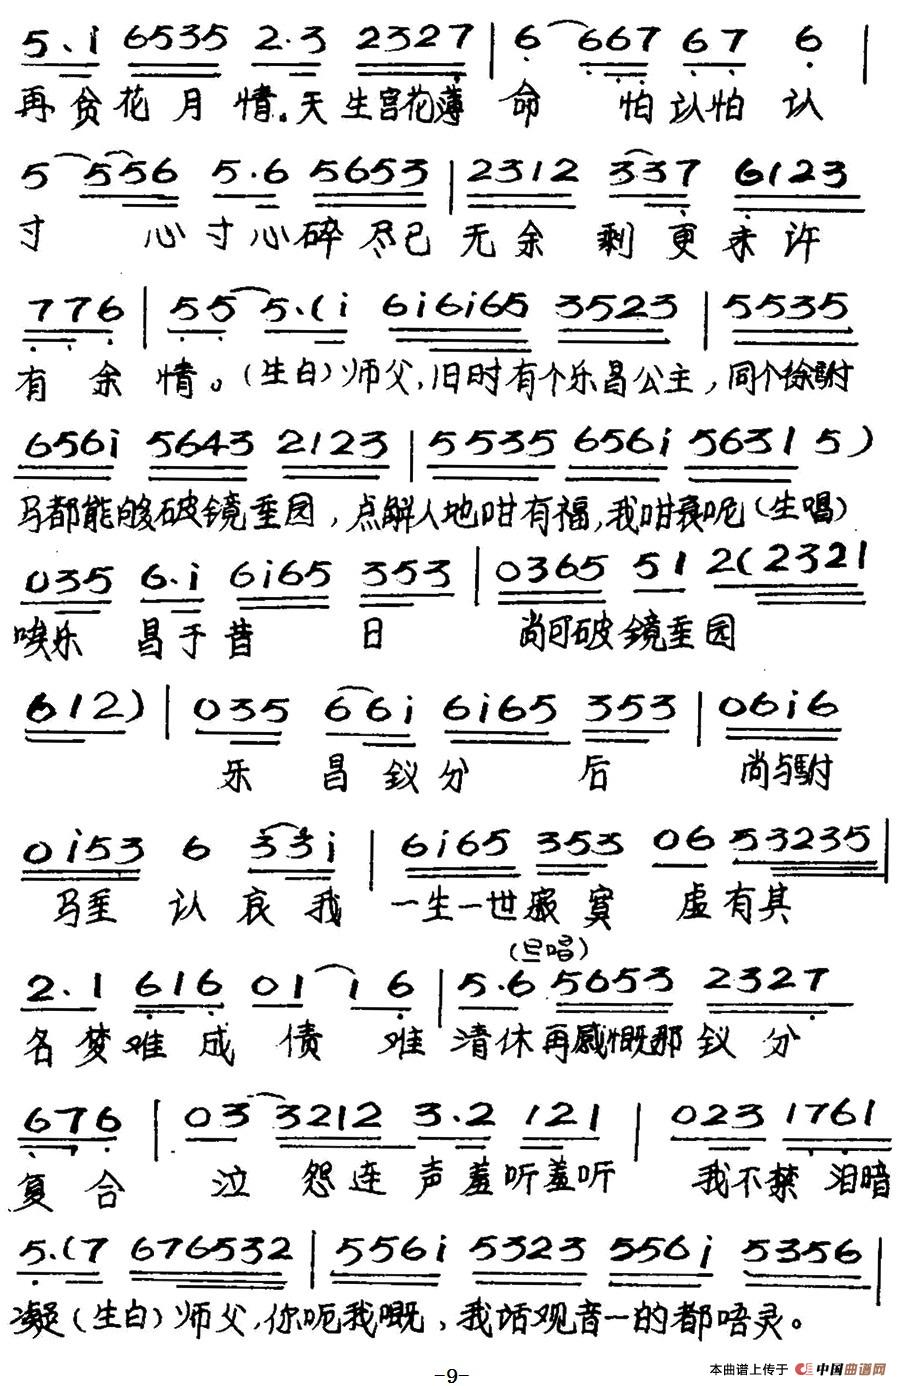 5.i 6535 2.3 2327 | 6 667 67 6 |
再贪花月情。天生宫花薄命 怕认怕认
5 556 5.6 5653 | 2312 337 6123
寸 心寸心碎尽已无余 剩更未许
776 | 55 5.(i 6i6i65 3523 | 5535
有余情。(生白)师父,旧时有个乐昌公主,同个徐驸
656i 5643 2123 | 5535 656i 5631 5)
马都能够破镜重园,点解人地咁有福,我咁衰呢(生唱)
035 6.i 6i65 353 | 0365 51 2(2321
唉乐 昌于昔 日 尚可破镜重园
612) | 035 66i 6i65 353 | 06i6
乐 昌钗分 后 尚与驸
0i53 6 33i | 6i65 353 06 53235 |
马重 认哀我 一生一世寂寞 虚有其
(旦唱)
2.1 616 01 16 | 5.6 5653 2327
名梦难成 债 难 清休再感慨那钗分
676 | 03 3212 3.2 121 | 023 1761
复合 泣 怨连声羞听羞听 我不禁 泪暗
5.(7 676532 | 556i 5323 556i 5356 |
凝(生白)师父,你呃我嘅,我话观音一的都唔灵。
-9-
本曲谱上传于 中国曲谱网